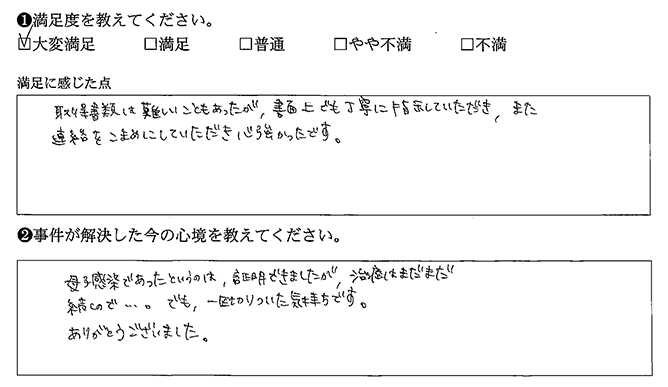 ❶満足度を教えてください。
☑大変満足 □満足 □普通 □やや不満 □不満
満足に感じた点
取得書類は難しいこともあったが、書面上でも丁寧に指示していただき、また
連絡をこまめにしていただき心強かったです。
❷事件が解決した今の心境を教えてください。
母子感染であったというのは、証明できましたが、治療はまだまだ
続くので…。でも、一区切りついた気持ちです。
ありがとうございました。